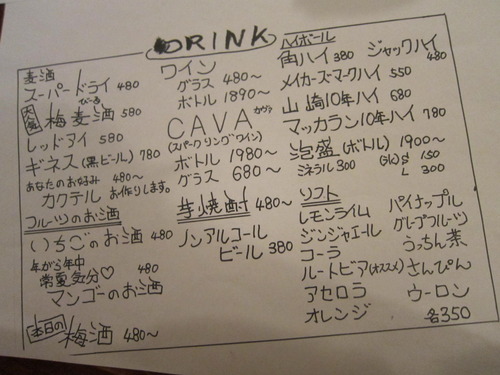 DRINK
麦酒
スーパードライ 480
人気 梅麦酒 580
びーる
レッドアイ 580
ギネス(黒ビール) 780
あなたのお好み 480〜
カクテル お作りします。
フルーツのお酒
いちごのお酒 480
年がら年中
常夏気分♡ 480
マンゴーのお酒
本日の 梅酒 480〜
ワイン
グラス 480〜
ボトル 1890〜
CAVA カヴァ
(スパークリングワイン)
ボトル 1980〜
グラス 680〜
芋焼酎 480〜
ノンアルコール
ビール 380
ハイボール
角ハイ 380 ジャックハイ 480
メイカーズ・マークハイ 550
山崎10年ハイ 680
マッカラン10年ハイ 780
泡盛(ボトル) 1900〜
ミネラル 300 S 150
L 300
ソフト
レモンライム パイナップル
ジンジャエール グレープフルーツ
コーラ うっちん茶
ルートビア(オススメ) さんぴん
アセロラ ウーロン
オレンジ 各350